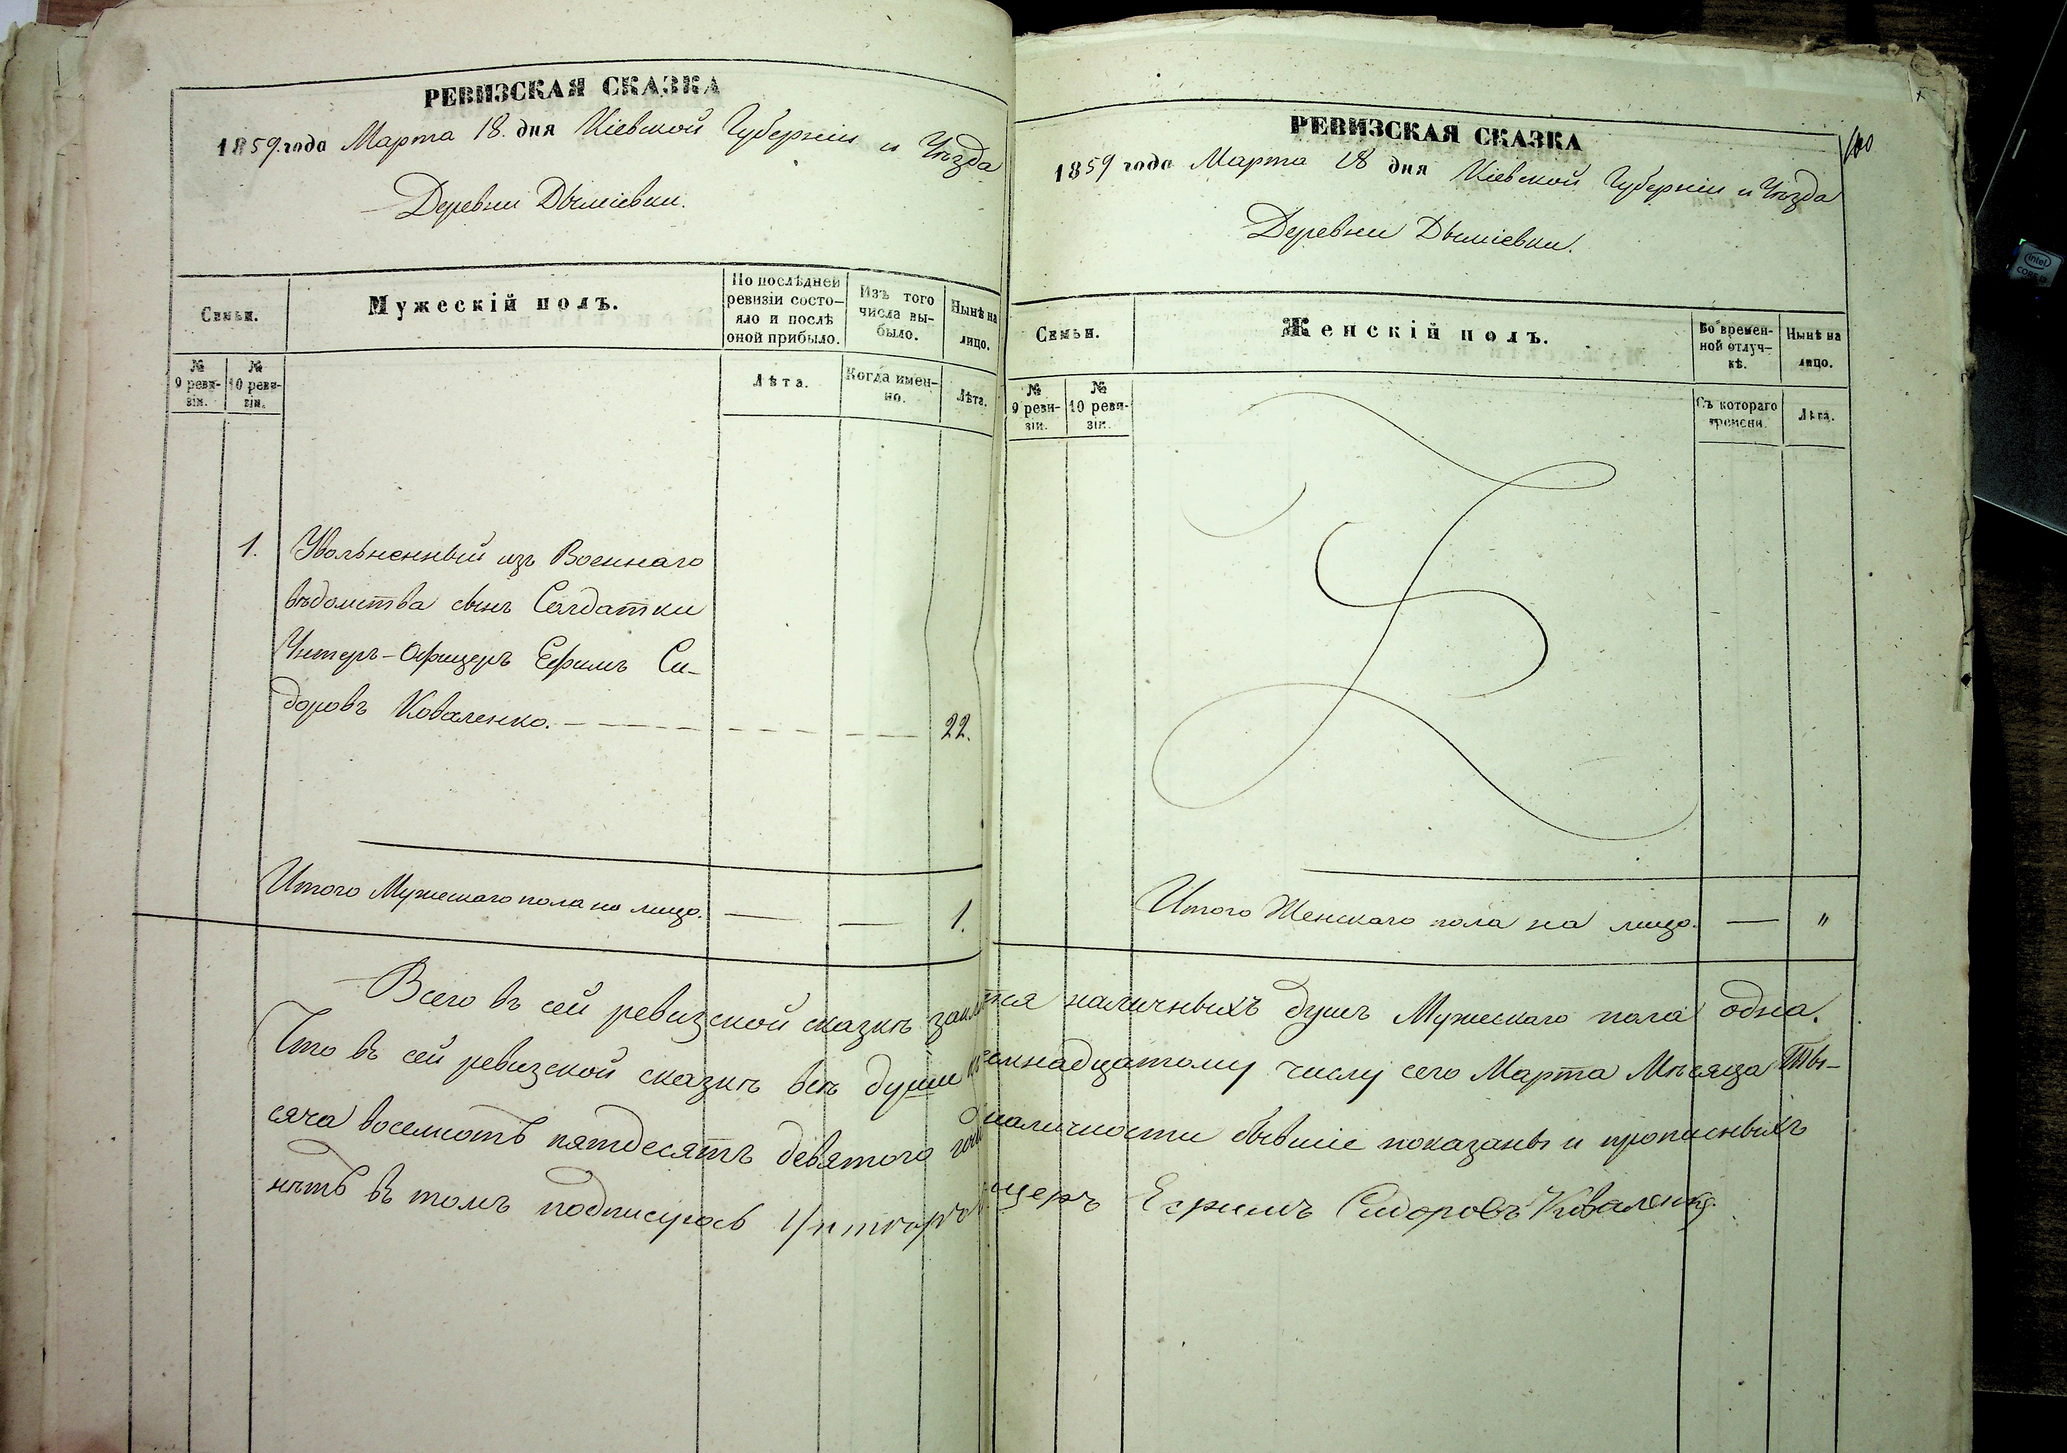 РЕВИЗСКАЯ СКАЗКА
1859 года Марта 18. дня Кіевской Губерніи и Уѣзда
Деревни Дыміевки.
Семьи.
Мужескій полъ.
По послѣдней ревизіи состо-
яло и послѣ
оной прибыло.
Изъ того
числа вы-
было.
Нынѣ на
лицо.
№
9 реви-
зіи.
№
10 реви-
зіи.
Лѣта.
Когда имен-
но.
Лѣта.
1. Увольненный изъ Военнаго
вѣдомства сынъ Солдатки
Унтеръ-Офицеръ Ефимъ Си-
доровъ Коваленко. 22.
Итого Мужескаго пола на лицо. 1.
РЕВИЗСКАЯ СКАЗКА
1859 года Марта 18 дня Кіевской Губерніи и Уѣзда
100
Деревни Дыміевки.
Семьи.
Женскій полъ.
Во времен-
ной отлуч-
кѣ.
Нынѣ на
лицо.
№
9 реви-
зіи.
№
10 реви-
зіи.
Съ котораго
времени.
Лѣта.
Итого Женскаго пола на лицо. — "
Всего въ сей ревизской сказкѣ наличныхъ душъ Мужескаго пола одна.
Что въ сей ревизской сказкѣ всѣ души числу сего Марта Мѣсяца Ты-
сяча восемсотъ пятдесятъ девятого наличности бывшіе показаны и прописныхъ
нѣтъ въ томъ подписуюсь Унтеръ Ефимъ Сидоровъ Коваленко.